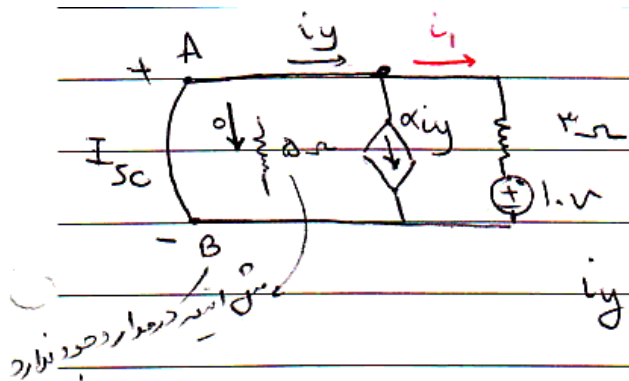 A
+
iy
i₁
0
۵Ω
αiy
۳Ω
I sc
+
-
۱۰v
- B
iy
مثل اینکه در مدار وجود ندارد